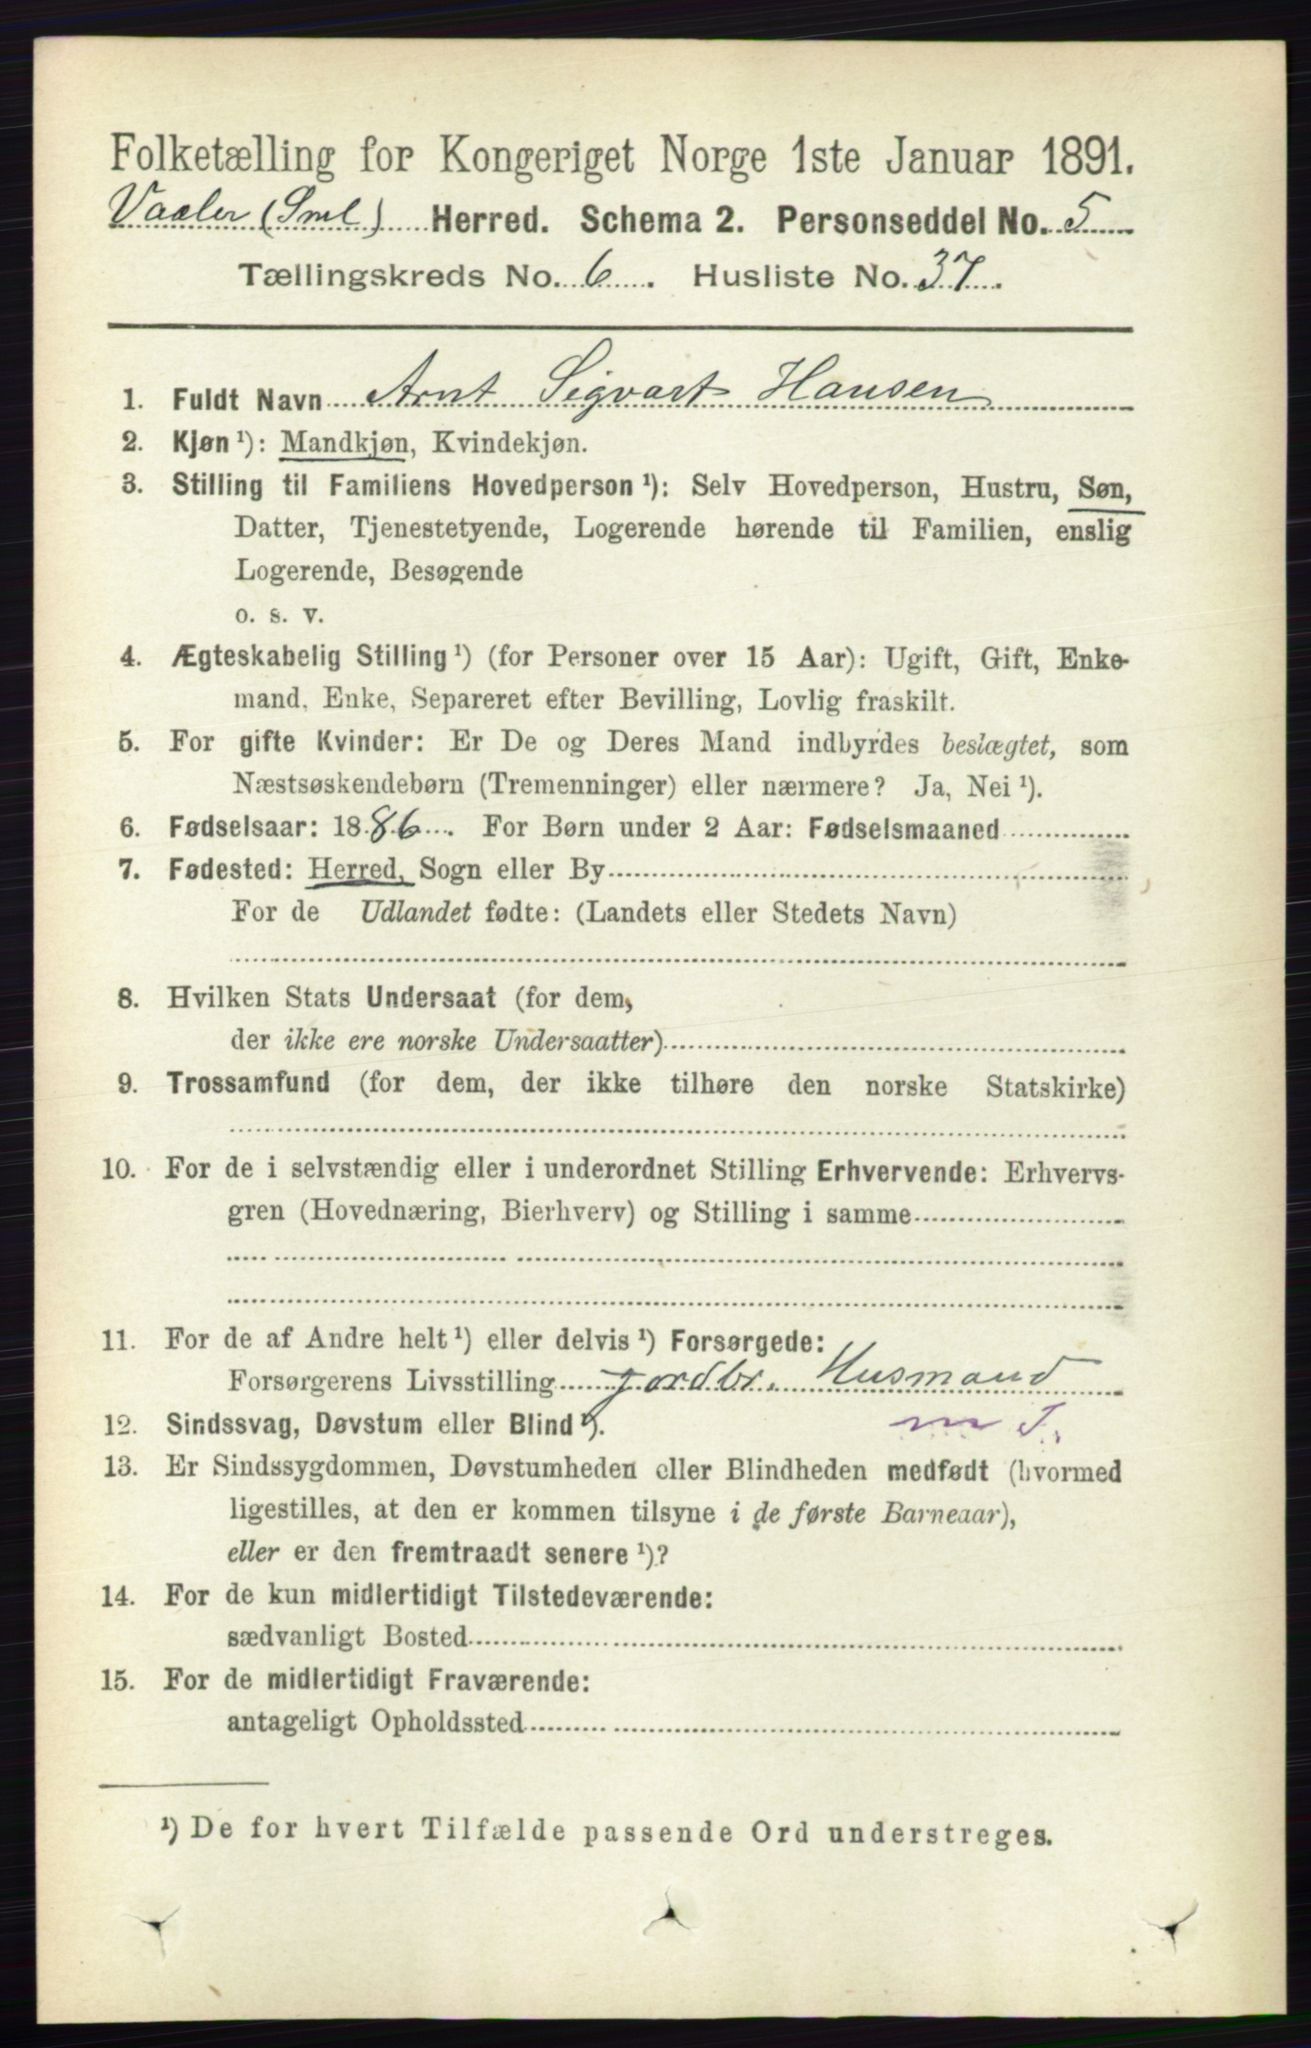 Folketælling for Kongeriget Norge 1ste Januar 1891.
Vaaler (Sml) Herred. Schema 2. Personseddel No. 5
Tællingskreds No. 6. Husliste No. 37.
1. Fuldt Navn Arnt Sigvart Hansen
2. Kjøn ¹): Mandkjøn, Kvindekjøn.
3. Stilling til Familiens Hovedperson ¹): Selv Hovedperson, Hustru, Søn,
Datter, Tjenestetyende, Logerende hørende til Familien, enslig
Logerende, Besøgende
o. s. v.
4. Ægteskabelig Stilling ¹) (for Personer over 15 Aar): Ugift, Gift, Enke-
mand, Enke, Separeret efter Bevilling, Lovlig fraskilt.
5. For gifte Kvinder: Er De og Deres Mand indbyrdes beslægtet, som
Næstsøskendebørn (Tremenninger) eller nærmere? Ja, Nei ¹).
6. Fødselsaar: 1886. For Børn under 2 Aar: Fødselsmaaned
7. Fødested: Herred, Sogn eller By
For de Udlandet fødte: (Landets eller Stedets Navn)
8. Hvilken Stats Undersaat (for dem,
der ikke ere norske Undersaatter)
9. Trossamfund (for dem, der ikke tilhøre den norske Statskirke)
10. For de i selvstændig eller i underordnet Stilling Erhvervende: Erhvervs-
gren (Hovednæring, Bierhverv) og Stilling i samme
11. For de af Andre helt ¹) eller delvis ¹) Forsørgede:
Forsørgerens Livsstilling jordbr. Husmand
12. Sindssvag, Døvstum eller Blind ¹). m J.
13. Er Sindssygdommen, Døvstumheden eller Blindheden medfødt (hvormed
ligestilles, at den er kommen tilsyne i de første Barneaar),
eller er den fremtraadt senere ¹)?
14. For de kun midlertidigt Tilstedeværende:
sædvanligt Bosted
15. For de midlertidigt Fraværende:
antageligt Opholdssted
¹) De for hvert Tilfælde passende Ord understreges.